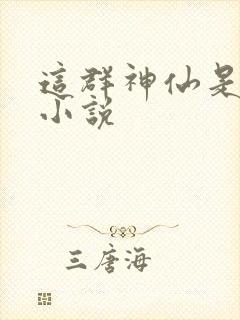 這群神仙是
小說
三唐海